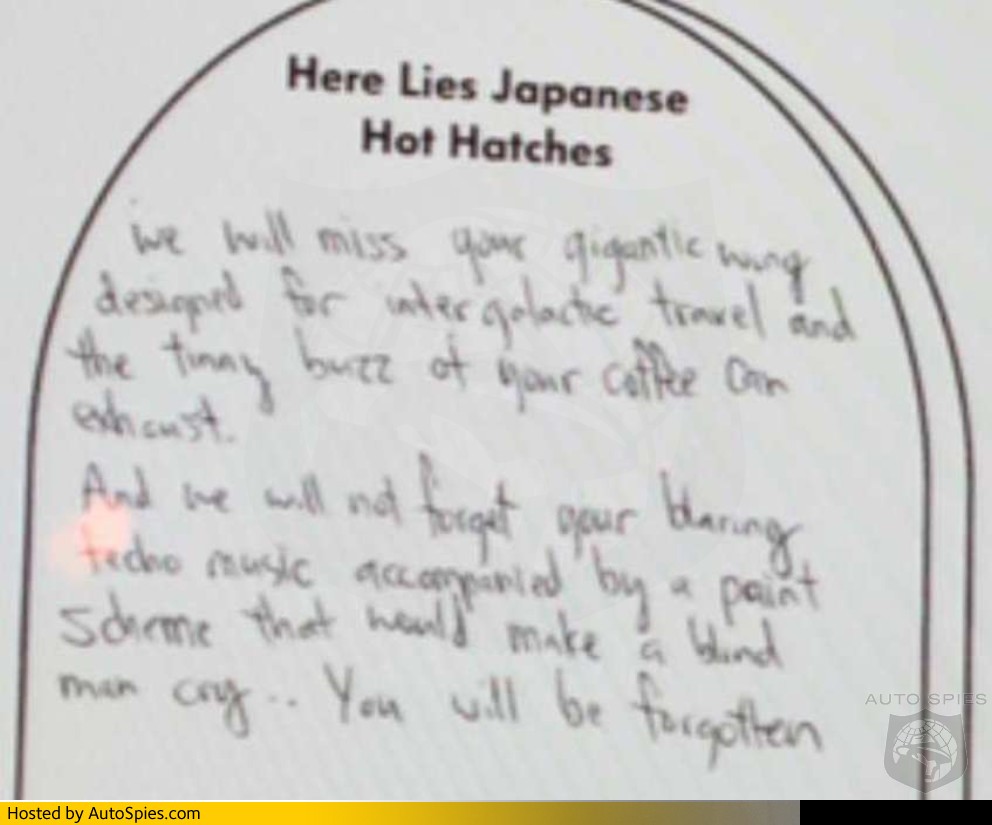 Here Lies Japanese
Hot Hatches
we will miss your gigantic wing
designed for intergalactic travel and
the tinny buzz of your coffee can
exhaust.
And we will not forget your blaring
techo music accompanied by a paint
scheme that would make a blind
man cry.. You will be forgotten
AUTO SPIES
Hosted by AutoSpies.com